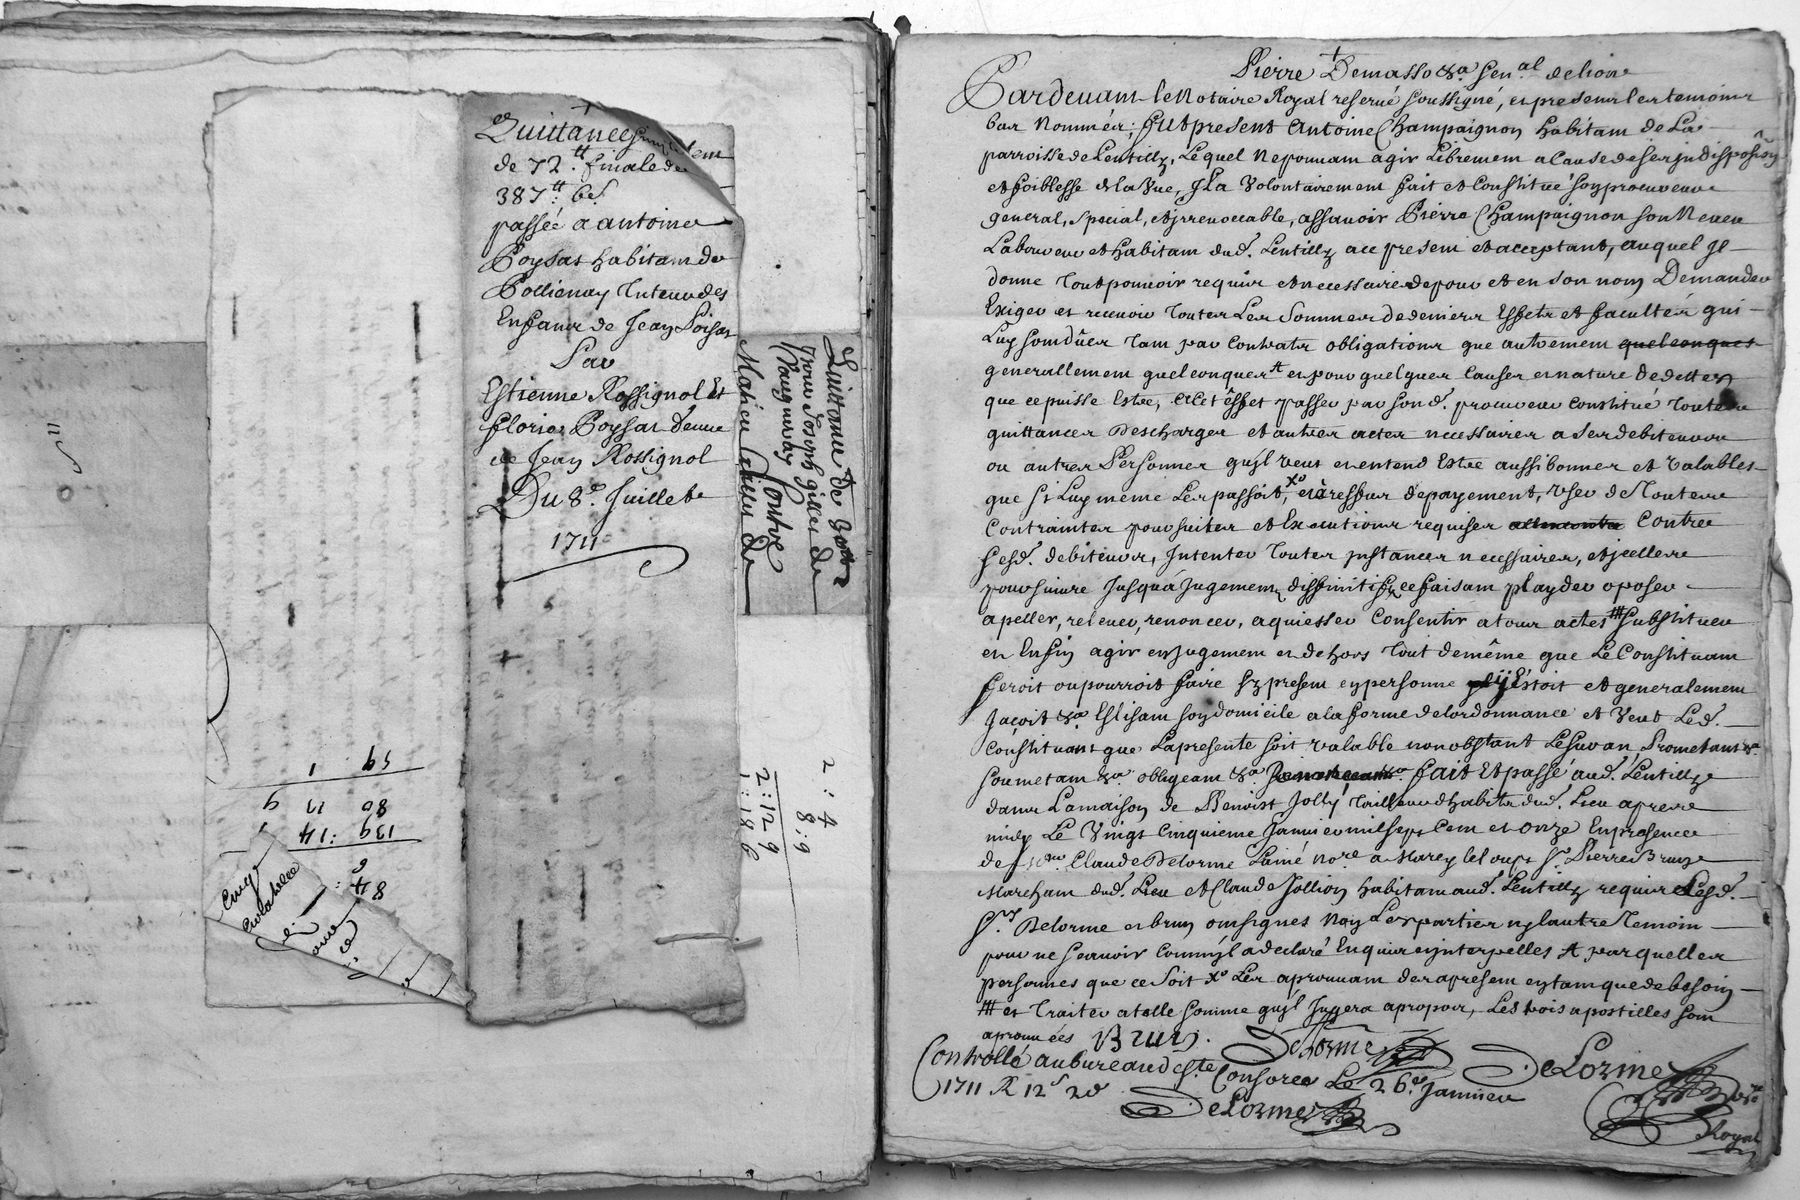 Quittance
de 72 tt. finale de
387 tt: 6 s.
passée a antoine
Poysat habitant de
Pollionay Tuteur des
Enfants de Jean Poisat
Par
Estienne Rossignol Et
floris Poysat veuve
de Jean Rossignol
Du 8e. Juillet
1711
Quittance de
pour Joseph gilles de
Vaugneray Contre
Mathieu Gilles de
2 : 4
8 : 9
2 : 12 9
1 : 18 6
59 1
80 11 9
139 : 14
84
Pierre Demasso &a. Sen.al de lion
Pardevant le Notaire Royal reservé soussigné, et presents les temoins
bas Nommés; fut present Antoine Champaignon habitant de La
parroisse de Lentilly, Lequel Ne pouvant agir Librement a cause de ses indisposion
et foiblesse de la Vue, Il a Volontairement fait et Constitué son procureur
general, special, et irrevoccable, assavoir Pierre Champaignon son Neveu
Laboureur et habitant dud. Lentilly a ce present et acceptant, auquel Il
donne Tout pouvoir requis et necessaire de pour et en son nom Demander
Exiger et recevoir Toutes Les Sommes de deniers Effets et facultés qui
Luy sont dües tant par Contrats obligations que autrement quelconques
generallement quelconques tt et pour quelques Causes et nature de dettes
que ce puisse Estre, a Cet effet passer par sond. procureur constitué Toutes
quittances Descharges et autres actes necessaires a ses debiteurs
ou autres Personnes qu'il veut et entend Estre aussi bonnes et valables
que si Luy meme Les passoit, Xo et a reffus de payement, user de Toutes
Contraintes poursuites et Executions requises allencontre Contre
sesd. debiteurs, Intenter Toutes instances necessaires, et icelles
poursuivre Jusqu'a Jugement diffinitif, ce faisant playder oposer
apeller, relever, renoncer, aquiesser Consentir a tous actes ttt substituer
et Enfin agir en Jugement et dehors Tout de même que Le Constituant
feroit ou pourroit faire sy present en personne y Estoit et generalement
Jacoit &a Eslisant son domicile a la forme de lordonnance et Veut Led.
Constituant que La presente soit valable nonobstant Le suran, Prometant &a
soumetant &a obligeant &a Renonceant &a. fait Et passé aud. Lentilly
dans La maison de Benoist Jolly Tailleur d'habits dud. Lieu apres
midy Le Vingt Cinquieme Janvier mil sept Cent et onze En presence
de Me Claude Delorme Lainé nore a Marcy le loup Sr. Pierre Brun
Marchant dud. Lieu et Claude Jollion habitant aud. Lentilly requis Lesd.
Srs. Delorme et brun ont signés Non Les parties ny lautre Temoin
pour ne scavoir comm'il a declaré Enquis et interpellés tt par quelles
personnes que ce soit Xo Les aprouvant des apresent en tant que de besoin
ttt et Traiter a telle somme qu'il Jugera apropos, Les trois apostilles sont
aprouvées Brun. Delorme DeLorme
Controllé au bureau de Ste Consorce Le 26e Janvier
1711 R 12 s 2 d
DeLorme
Royal